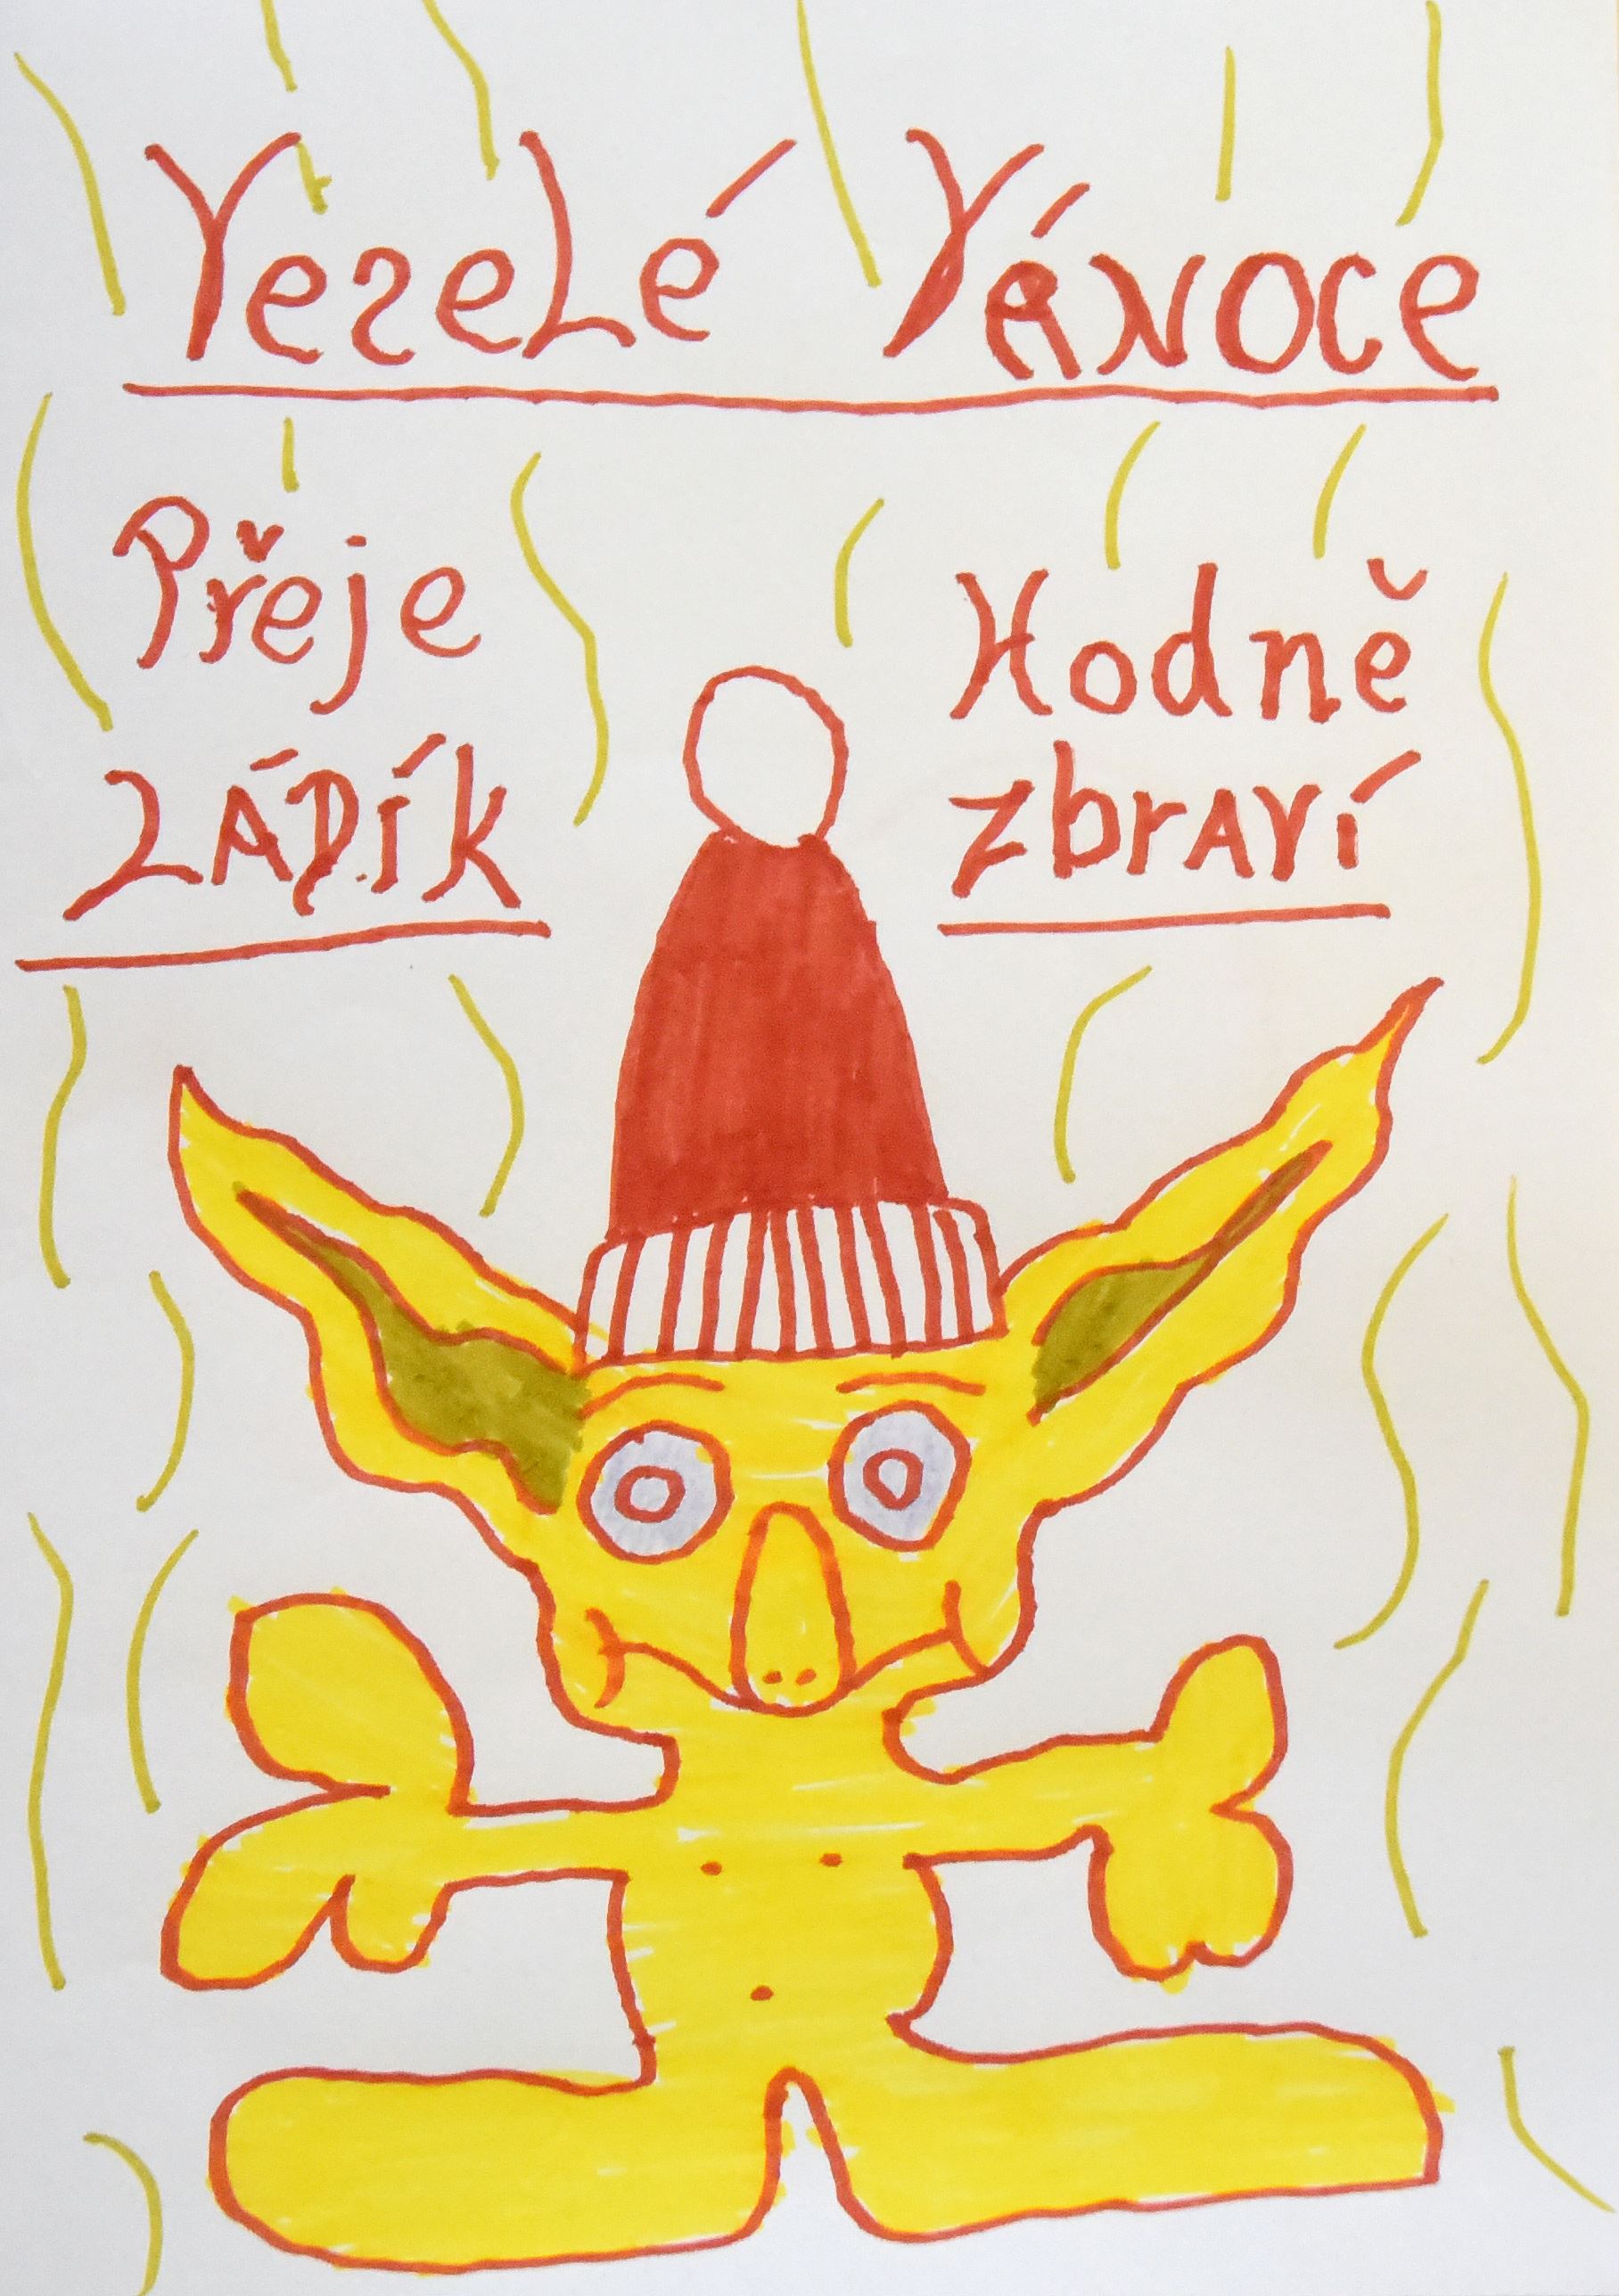 Veselé Vánoce
Přeje
Ládík
Hodně
zbraví